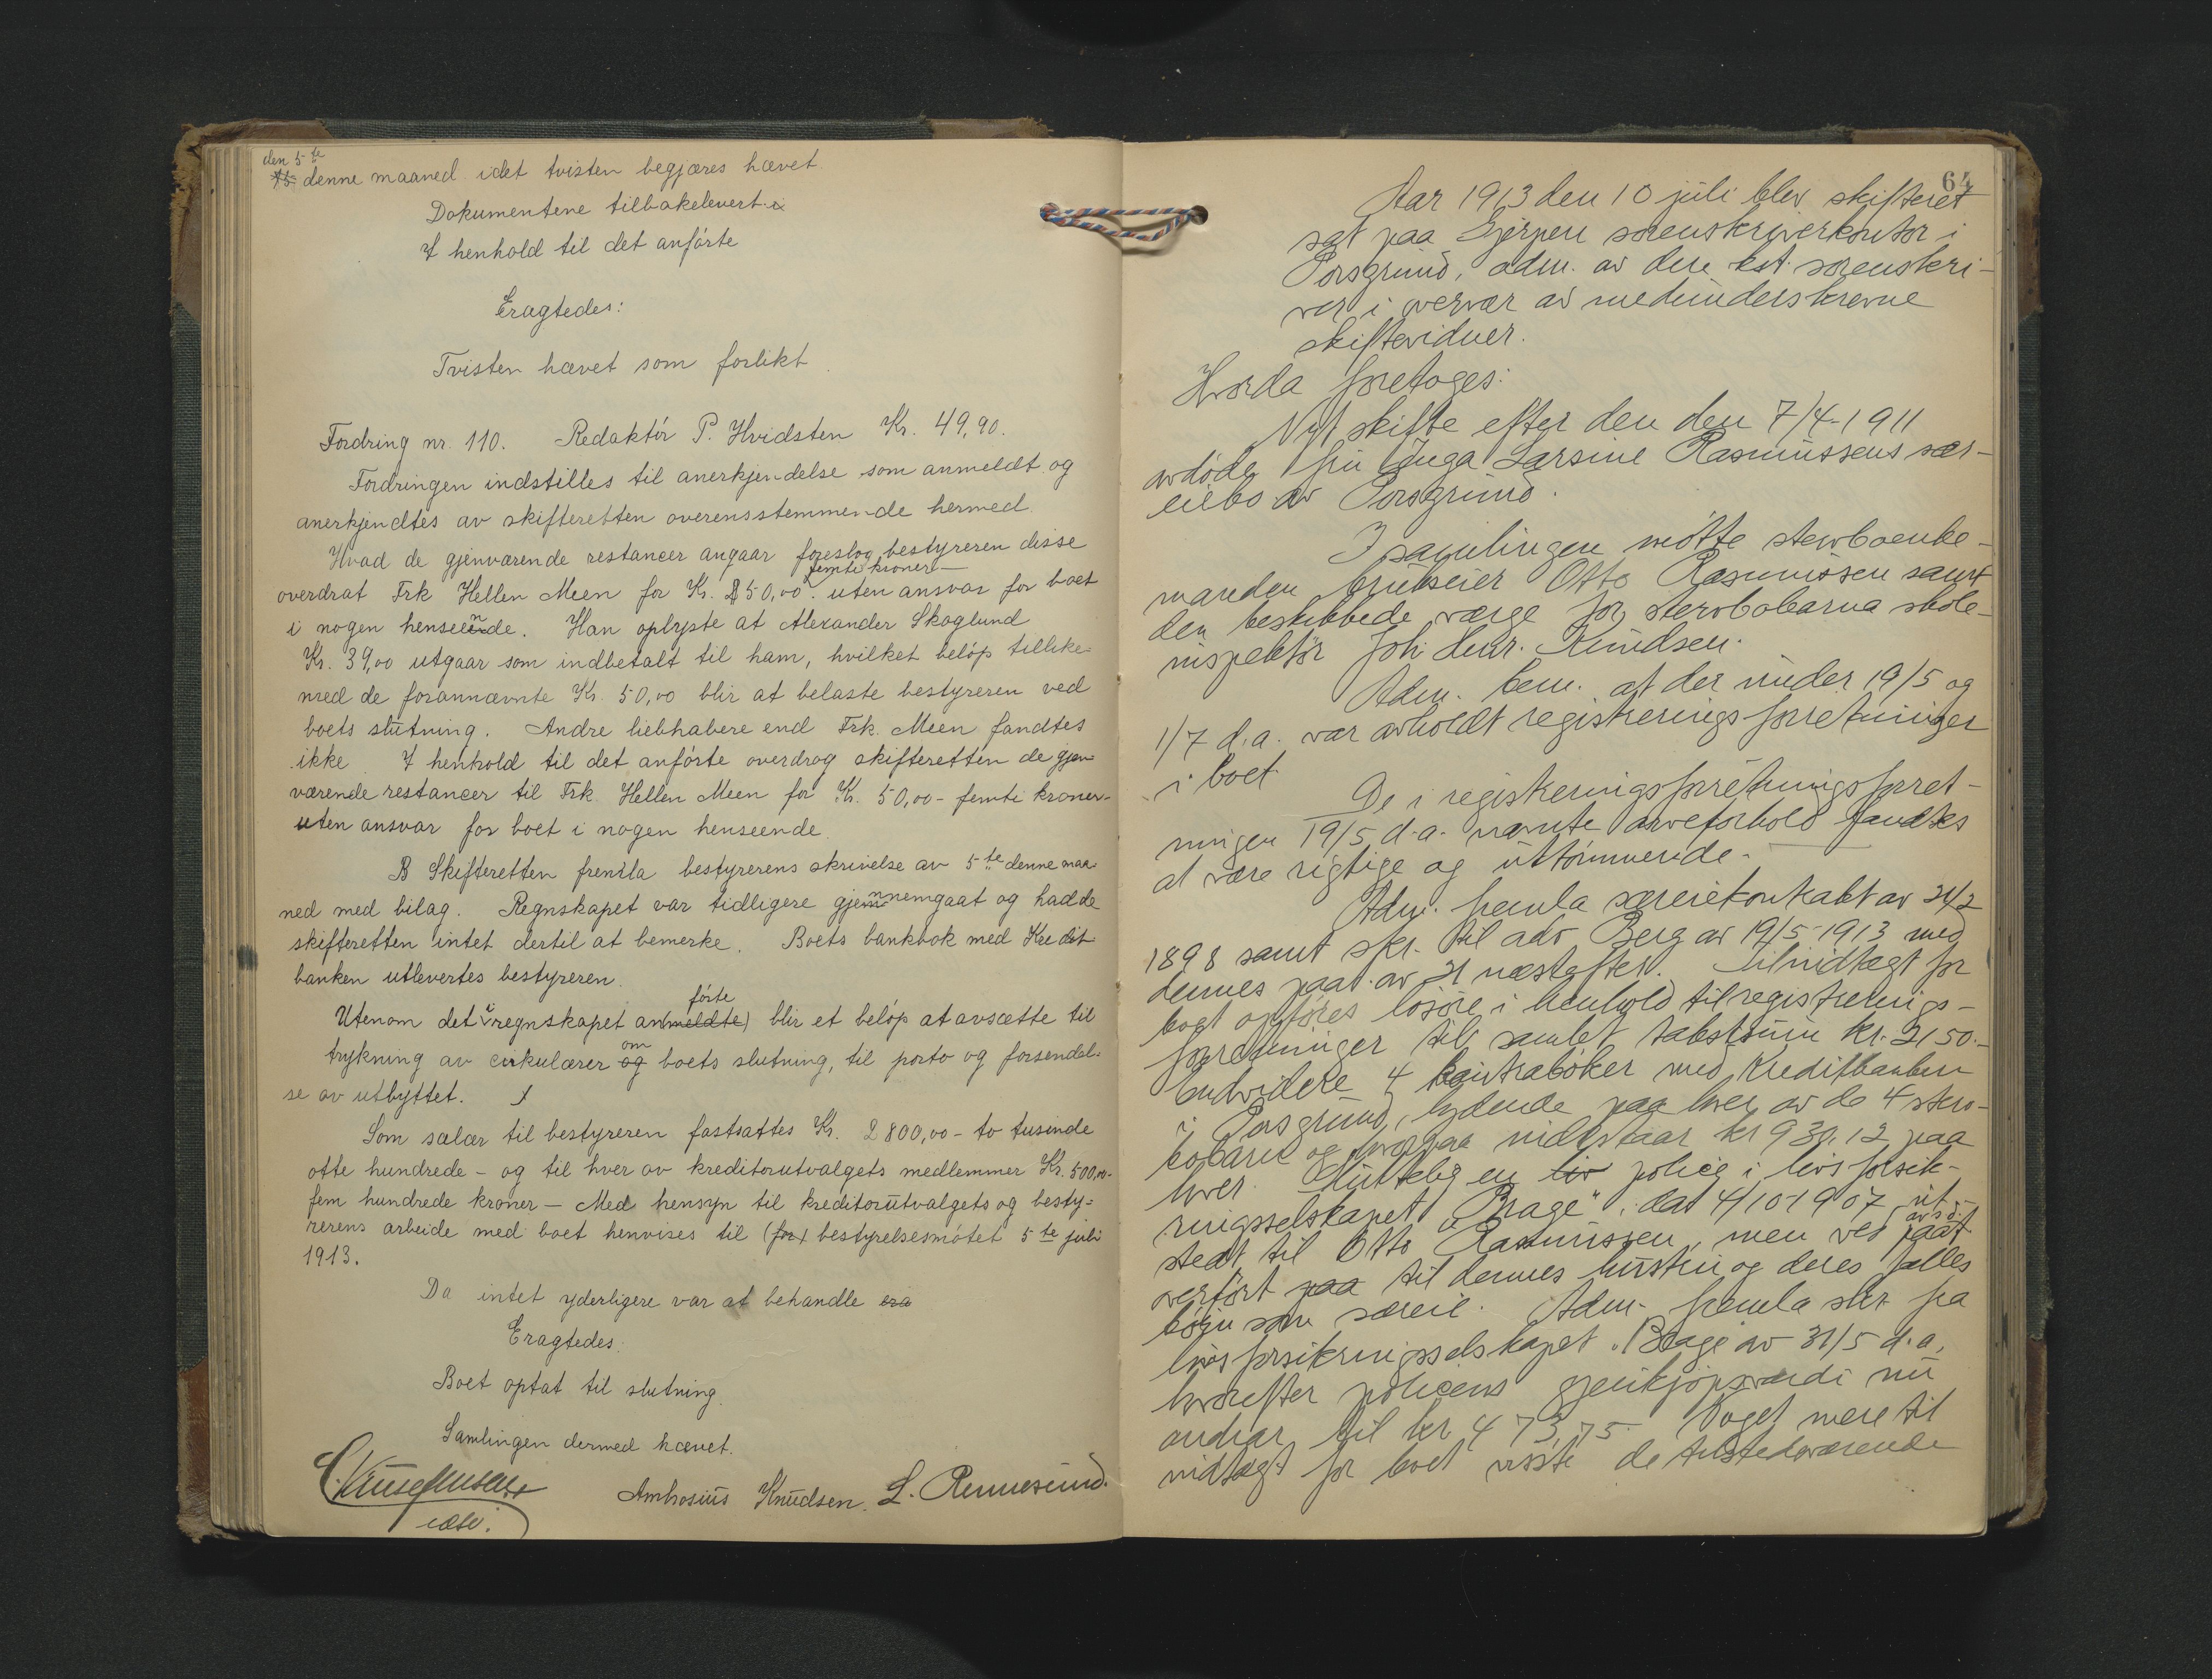 den 5te
15 denne maaned idet tvisten begjæres hævet.
Dokumentene tilbakelevert. i
I henhold til det anförte
Eragtedes:
Tvisten hævet som forlikt.
Fordring nr. 110. Redaktör P. Hvidsten Kr. 49,90.
Fordringen indstilles til anerkjendelse som anmeldt og
anerkjendtes av skifteretten overensstemmende hermed.
Hvad de gjenværende restancer angaar foreslog bestyreren disse
femti kroner-
overdrat Frk Hellen Meen for Kr. 50,00. uten ansvar for boet
i nogen henseende. Han oplyste at Alexander Skoglund
Kr. 39,00 utgaar som indbetalt til ham, hvilket belöp tillike-
med de forannævnte Kr. 50,00 blir at belaste bestyreren ved
boets slutning. Andre liebhabere end Frk. Meen fandtes
ikke. I henhold til det anförte overdrog skifteretten de gjen-
værende restancer til Frk. Hellen Meen for Kr. 50,00 - femti kroner-
uten ansvar for boet i nogen henseende.
B Skifteretten fremla bestyrerens skrivelse av 5te denne maa-
ned med bilag. Regnskapet var tidligere gjennemgaat og hadde
skifteretten intet dertil at bemerke. Boets bankbok med Kredit-
banken utlevertes bestyreren.
förte
Utenom det i regnskapet an(meldte) blir et belöp at avsætte til
om
trykning av cirkulærer og boets slutning, til porto og forsendel-
se av utbyttet.
Som salær til bestyreren fastsattes Kr. 2800,00 - to tusinde
otte hundrede - og til hver av kreditorutvalgets medlemmer Kr. 500,00-
fem hundrede kroner - Med hensyn til kreditorutvalgets og besty-
rerens arbeide med boet henvises til (for) bestyrelsesmötet 5te juli
1913.
Da intet yderligere var at behandle era
Eragtedes:
Boet optat til slutning.
Samlingen dermed hævet.
Ambrosius Knudsen. L. Rennesund.
64
Aar 1913 den 10 juli blev skifteret
sat paa Gjerpen sorenskriverkontor i
Porsgrund, adm. av den kst. sorenskri-
ver i overvær av medunderskrevne
skiftevidner.
Hvorda foretoges:
Nyt skifte efter den den 7/4-1911
avdöde fru Inga Larsine Rasmussens sær-
eiebo av Porsgrund.
I samlingen mötte stervboenke-
manden brukseier Otto Rasmussen samt
den beskikkede værge for stervbobarna skole-
inspektör Joh. Chr. Knudsen.
Adm. bem. at der under 19/5 og
1/7 d.a. var avholdt registreringsforretninger
i boet.
De i registreringsforretningsforret-
ningen 19/5 d.a. nævnte arveforhold fandtes
at være rigtige og uttömmende.
Adm. fremla særeiekontrakt av 24/2
1898 samt skr. til adv Berg av 19/5-1913 med
dennes paat. av 21 næstefter. Til indtægt for
boet opföres lösöre i henhold til registrerings-
forretninger til samlet takstsum kr. 2150.-
Endvidere 4 kontraböker med Kreditbanken
i Porsgrund, lydende paa hver av de 4 sterv-
bobarn og hvorpaa indestaar kr 930.12 paa
hver. Endelig en liv police i livsforsik-
ringsselskapet "Brage", dat 4/10-1907, ut-
stedt til Otto Rasmussen, men ved paat.
overfört paa til dennes hustru og deres fælles
börn som særeie. Adm. fremla skr. fra
livsforsikringsselskapet "Brage" av 31/5 d.a.
hvorefter policens gjenkjöpsværdi nu
andrar til kr. 473,75. Noget mere til
indtægt for boet visste de tilstedeværende